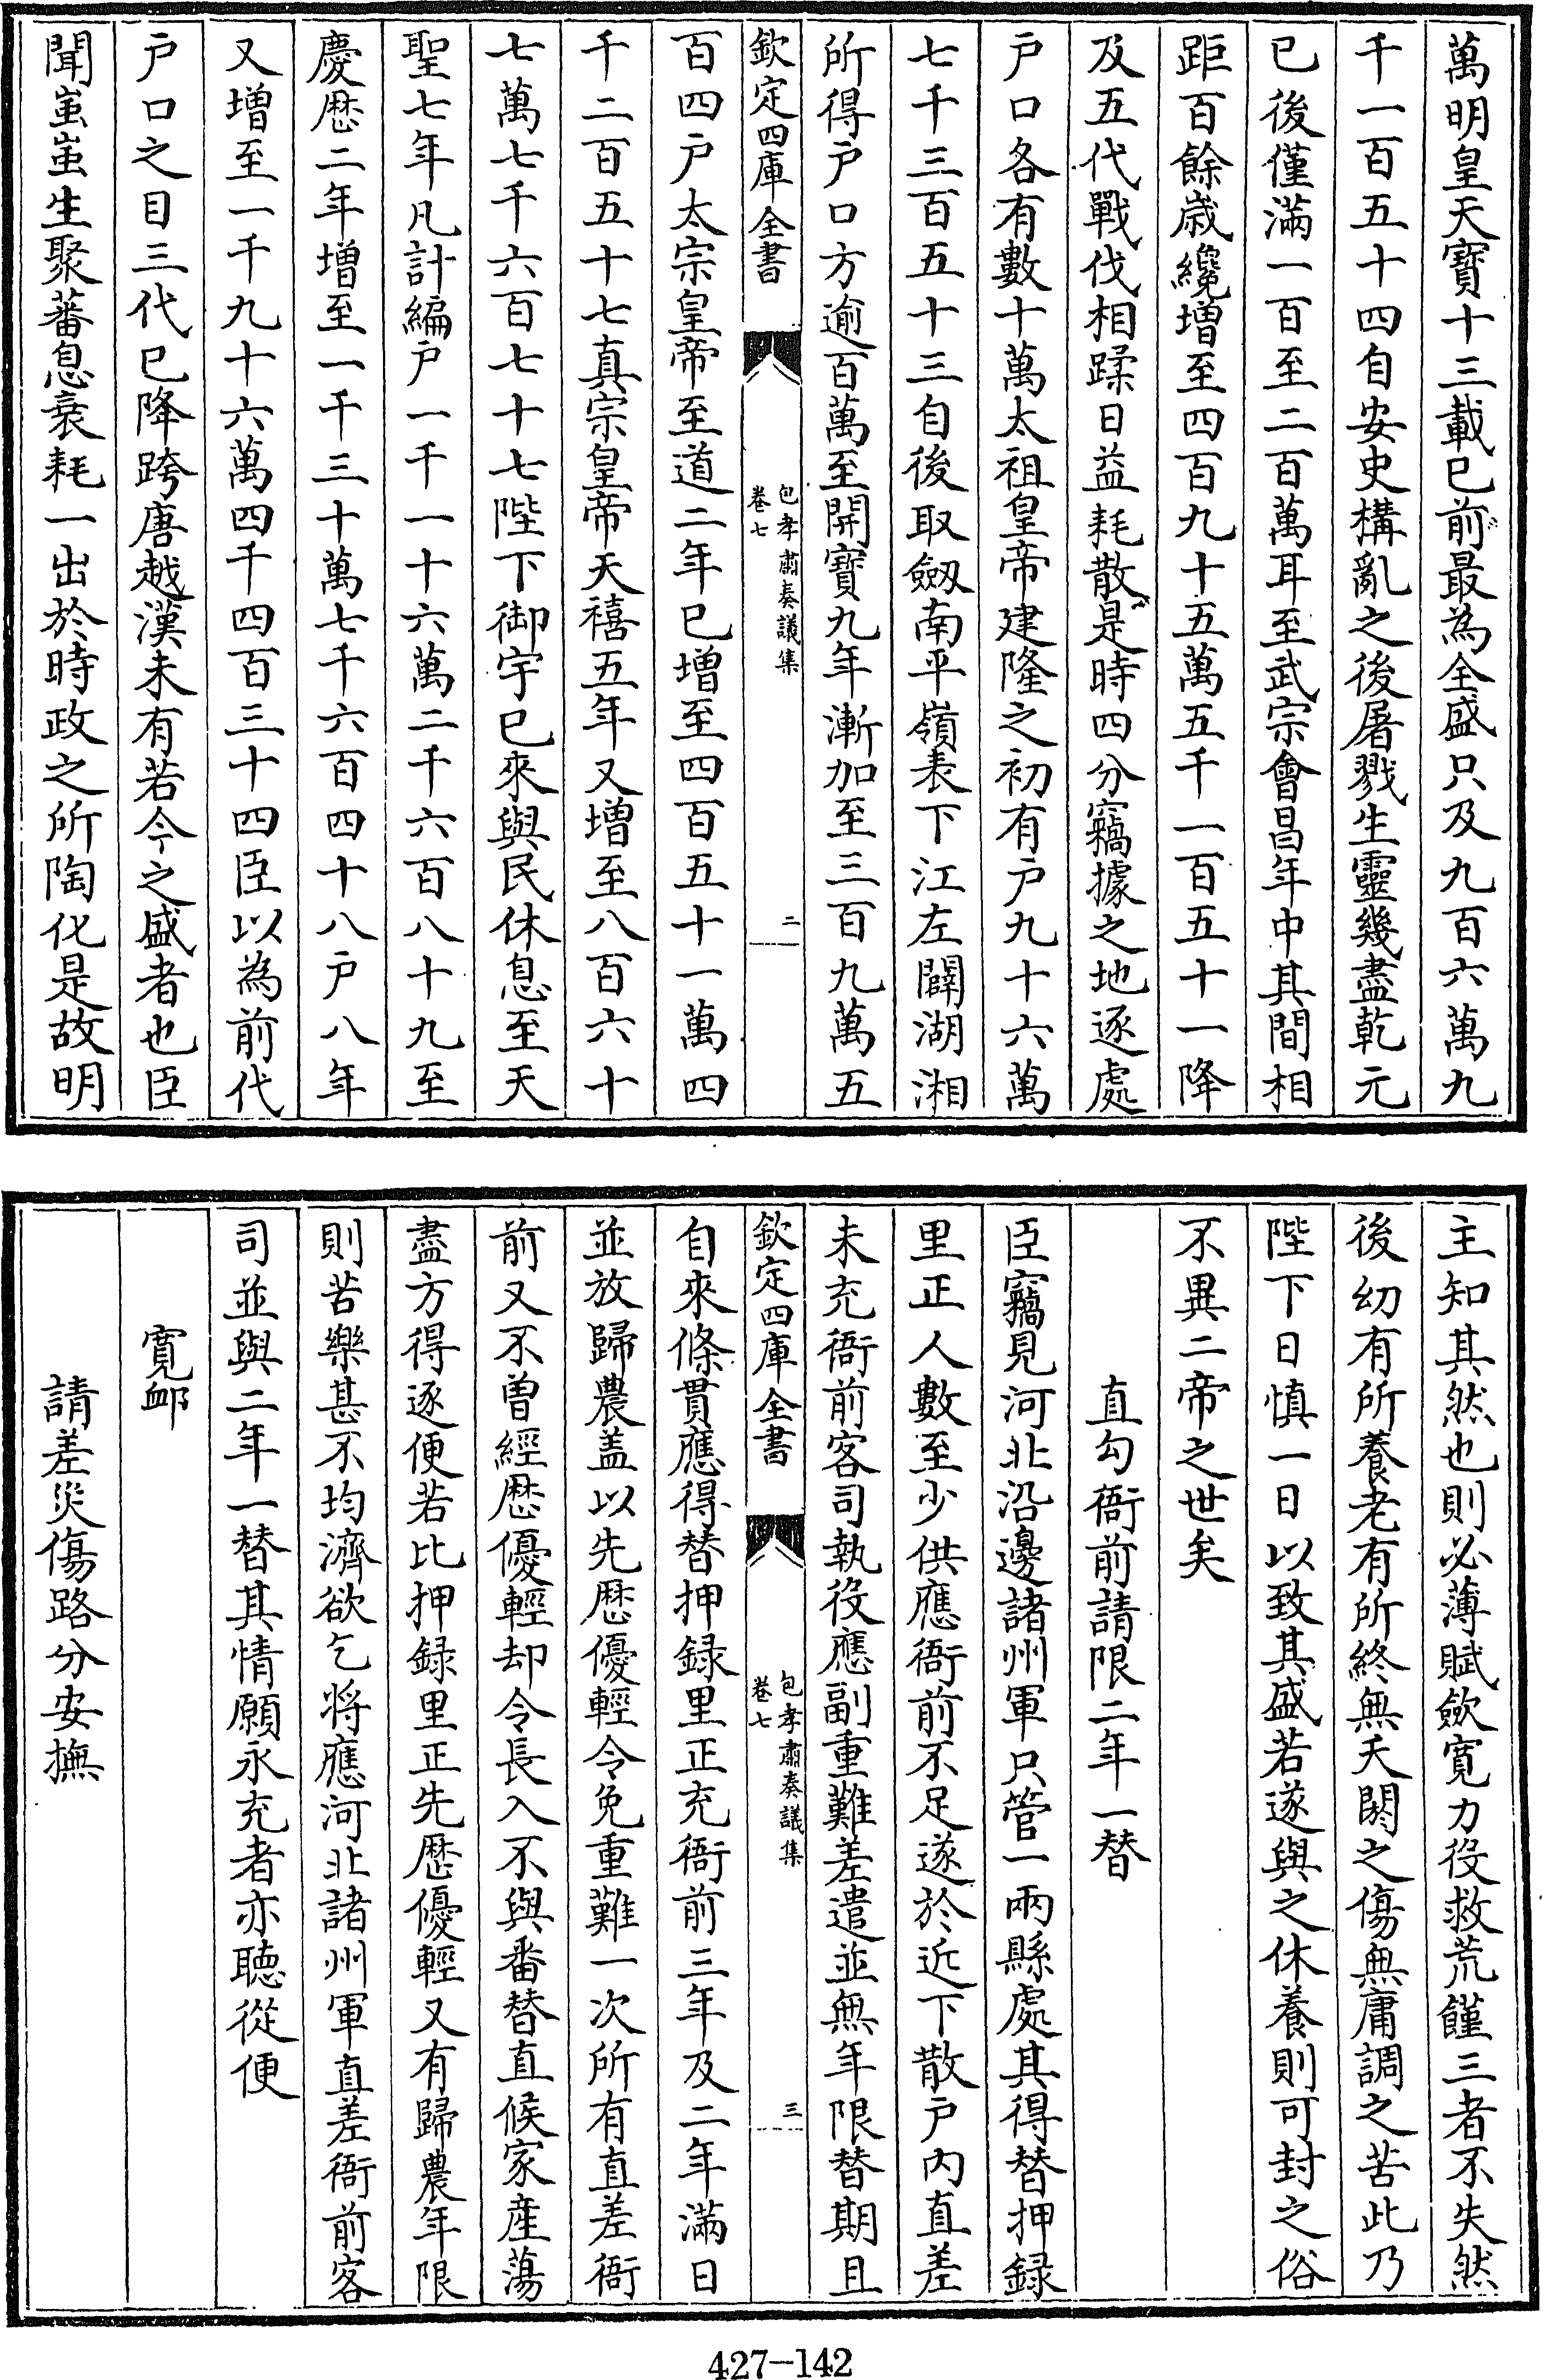 萬明皇天寶十三載已前最為全盛只及九百六萬九
千一百五十四自安史構亂之後屠戮生靈幾盡乾元
已後僅滿一百至二百萬耳至武宗會昌年中其間相
距百餘歲纔增至四百九十五萬五千一百五十一降
及五代戰伐相蹂日益耗散是時四分竊據之地逐處
户口各有數十萬太祖皇帝建隆之初有户九十六萬
七千三百五十三自後取劔南平嶺表下江左闢湖湘
所得户口方逾百萬至開寶九年漸加至三百九萬五
欽定四庫全書
包孝肅奏議集
卷七
二
百四户太宗皇帝至道二年已增至四百五十一萬四
千二百五十七真宗皇帝天禧五年又增至八百六十
七萬七千六百七十七陛下御宇已來與民休息至天
聖七年凡計編户一千一十六萬二千六百八十九至
慶厯二年增至一千三十萬七千六百四十八户八年
又增至一千九十六萬四千四百三十四臣以為前代
户口之目三代已降跨唐越漢未有若今之盛者也臣
聞蚩蚩生聚蕃息衰耗一出於時政之所陶化是故明
主知其然也則必薄賦歛寛力役救荒饉三者不失然
後幼有所養老有所終無夭閼之傷無庸調之苦此乃
陛下日慎一日以致其盛若遂與之休養則可封之俗
不異二帝之世矣
直勾衙前請限二年一替
臣竊見河北沿邊諸州軍只管一兩縣處其得替押録
里正人數至少供應衙前不足遂於近下散户内直差
未充衙前客司執役應副重難差遣並無年限替期且
欽定四庫全書
包孝肅奏議集
卷七
三
自來條貫應得替押録里正充衙前三年及二年滿日
並放歸農盖以先厯優輕令免重難一次所有直差衙
前又不曾經厯優輕却令長入不與番替直候家産蕩
盡方得逐便若比押録里正先厯優輕又有歸農年限
則苦樂甚不均濟欲乞將應河北諸州軍直差衙前客
司並與二年一替其情願永充者亦聽從便
寛䘏
請差災傷路分安撫
427-142